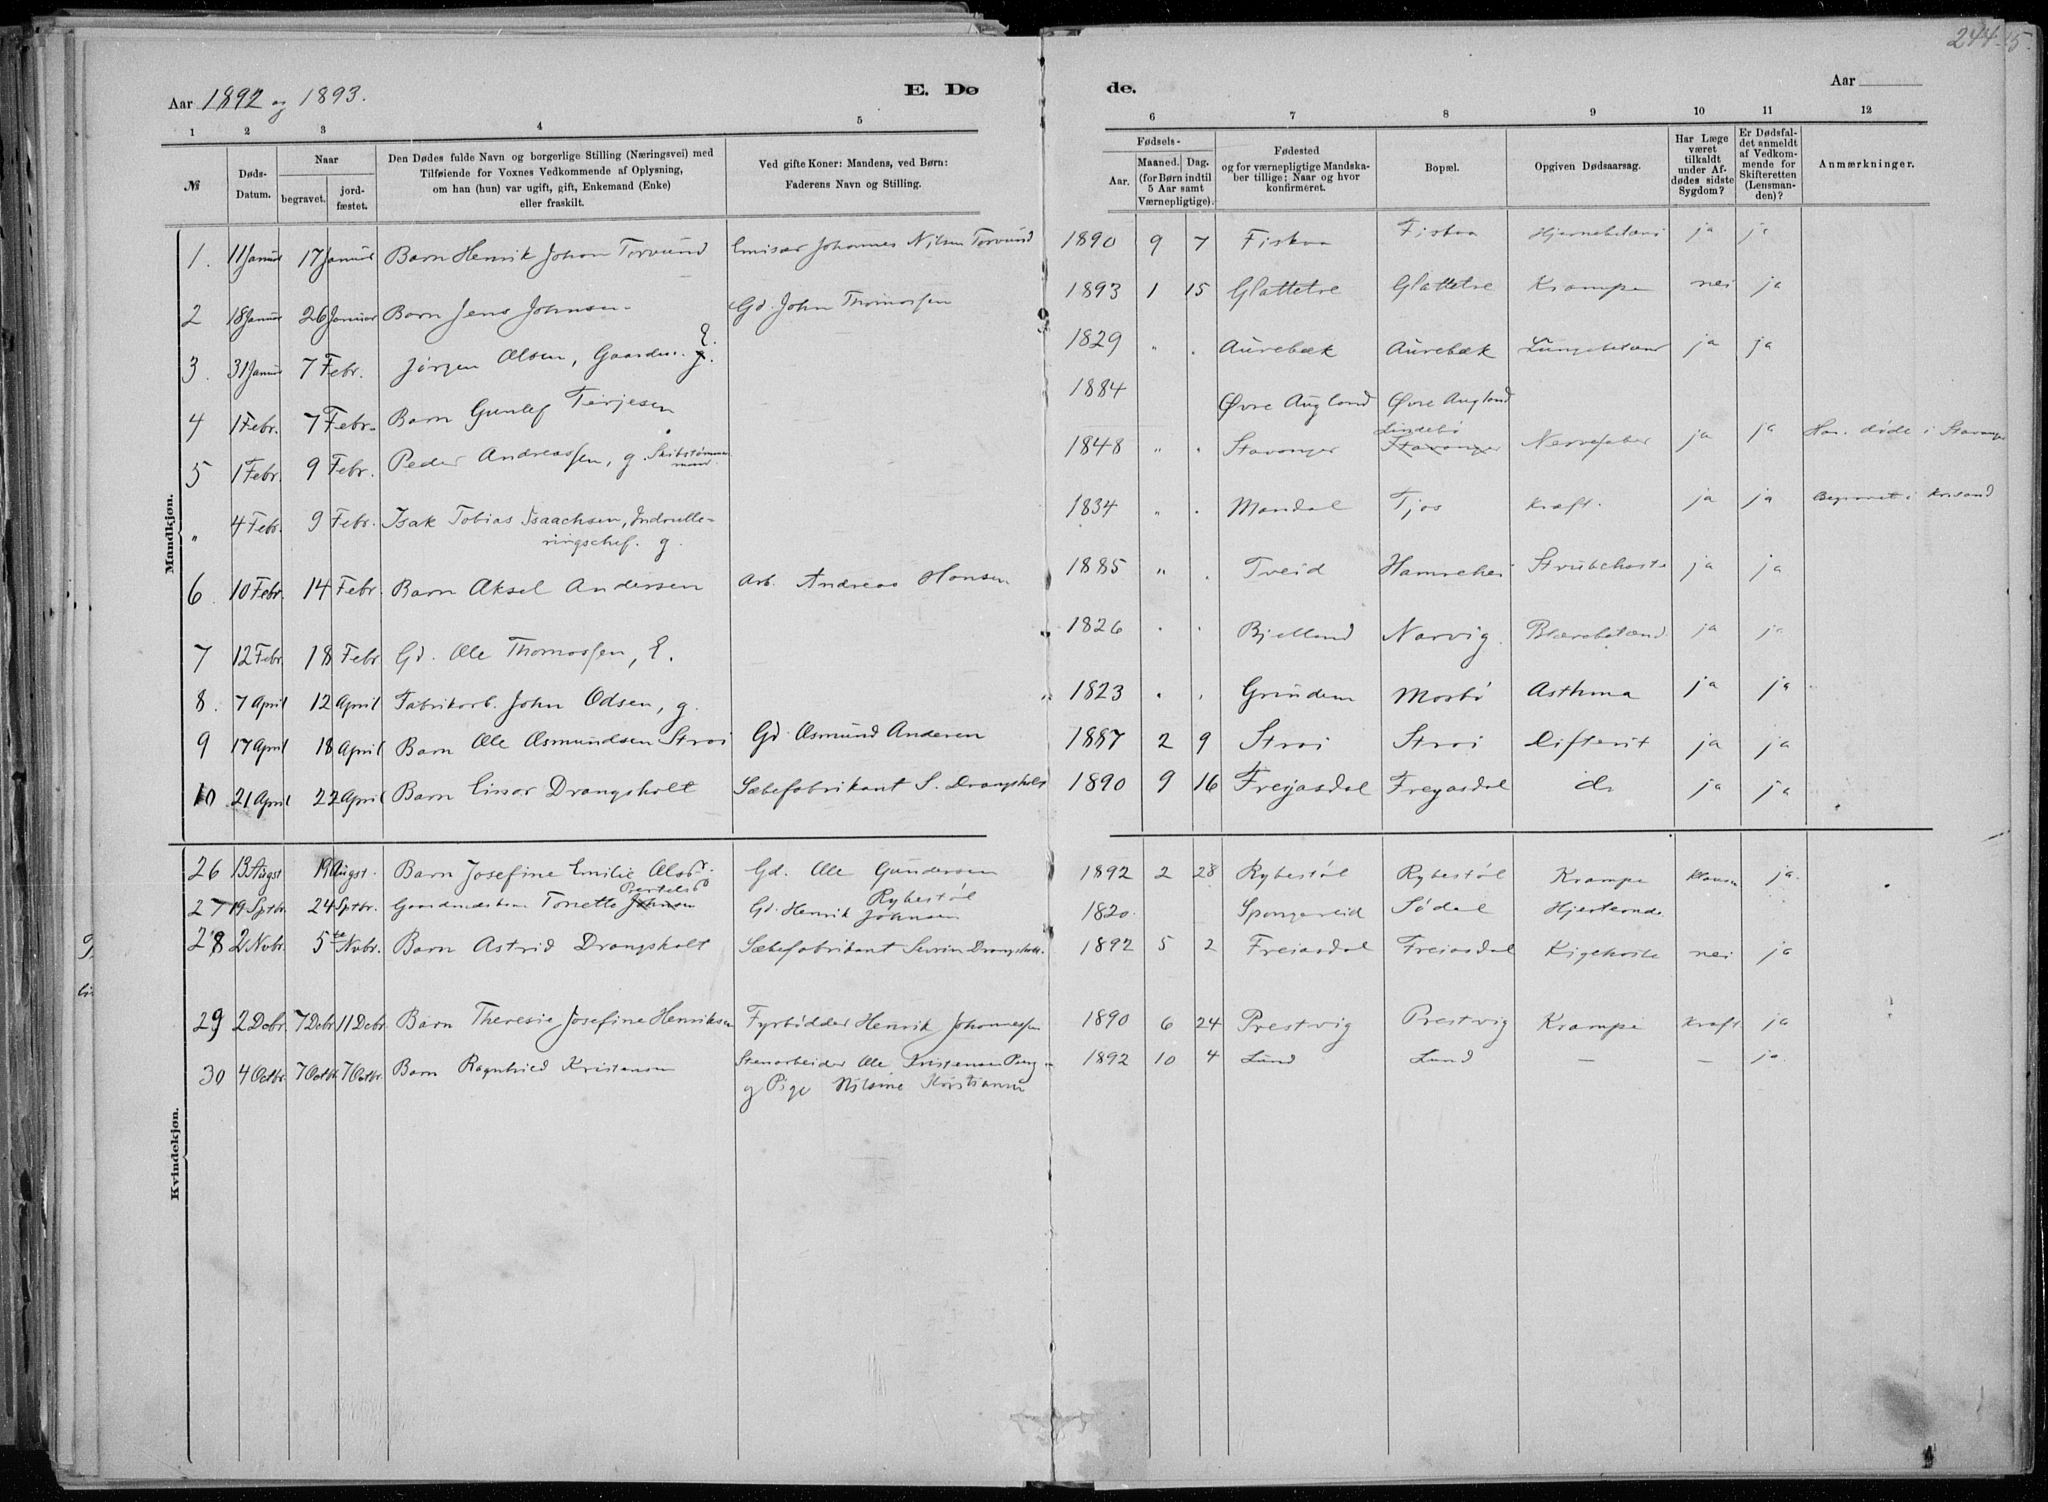 244
Aar 1892 og 1893.
E. Dø
de.
Aar
1 2 3 4 5 6 7 8 9 10 11 12
№
Døds-Datum.
Naar
begravet.
jord-fæstet.
Den Dødes fulde Navn og borgerlige Stilling (Næringsvei) med
Tilføiende for Voxnes Vedkommende af Oplysning,
om han (hun) var ugift, gift, Enkemand (Enke)
eller fraskilt.
Ved gifte Koner: Mandens, ved Børn:
Faderens Navn og Stilling.
Fødsels-
Aar.
Maaned. Dag.
(for Børn indtil
5 Aar samt
Værnepligtige).
Fødested
og for værnepligtige Mandska-
ber tillige: Naar og hvor
konfirmeret.
Bopæl.
Opgiven Dødsaarsag.
Har Læge
været
tilkaldt
under Af-
dødes sidste
Sygdom?
Er Dødsfal-
det anmeldt
af Vedkom-
mende for
Skifteretten
(Lensman-
den)?
Anmærkninger.
Mandkjøn.
1. 11 Januar 17 Januar Barn Henrik Johan Torvund Emisær Johannes Nilsen Torvund 1890 9 7 Fiskaa Fiskaa ja ja
2 18 Januar 26 Januar Barn Jens Johnsen Gd. John Thomassen 1893 1 15 Glattetre Glattetre Krampe nei ja
3. 31 Januar 7 Febr. Jørgen Olsen, Gaardm. E. 1829 " " Aurebæk Aurebæk Lungebetænd ja ja
4 1 Febr. 7 Febr. Barn Gunlef Terjesen 1884 Øvre Augland Øvre Augland
5 1 Febr. 9 Febr. Peder Andreassen, g. Skibstømmermand. 1848 " " Stavanger Lindebø Stavanger Nervefeber ja ja Han døde i Stavanger
" 4 Febr. 9 Febr. Isak Tobias Isaachsen, Indrulle-
ringschef. g. 1834 " " Mandal Tjos Kræft. ja ja Begravet i Krsand
6 10 Febr. 14 Febr. Barn Aksel Andersen Arb. Andreas Hansen 1885 " " Tveid Hamrehei Strubehoste ja ja
7 12 Febr. 18 Febr Gd. Ole Thomassen, E. 1826 " " Bjelland Narvig Blærebetænd. ja ja
8. 7 April 12 April Fabrikarb. John Odsen, g. 1823 " " Grinden Mosbø Asthma ja ja
9 17 April 18 April Barn Ole Osmundsen Strai Gd. Osmund Andersen 1887 2 9 Strai Strai Difterit ja ja
10 21 April 22 April Barn Einar Drangsholt Sæbefabrikant S. Drangsholt 1890 9 16 Freyasdal Freyasdal do ja ja
Kvindekjøn.
26 13 Augst 19 Augst. Barn Josefine Emilie Olsdr. Gd. Ole Gundersen
Rybestøl 1892 2 28 Rybestøl Rybestøl Krampe ja.
27 19 Sptbr. 24 Sptbr. Tonette Bertelsd Johnsen Gd. Henrik Johnsen 1820. Spangereid Sødal Hjerteonde.
28 2 Nvbr. 5te Nvbr. Barn Astrid Drangsholt Sæbefabrikant Severin Drangsholt. 1892 5 2 Freiasdal Freiasdal Kighoste nei ja
29 2 Debr. 7 Debr 11 Debr. Barn Theresie Josefine Henriksen Fyrbødder Henrik Johannessen 1890 6 24 Prestvig Prestvig Krampe Kraft ja
30 4 Octbr. 7 Octbr. 7 Octbr. Barn Ragnhild Kristensen Stenarbeider Ole Kristensen
og Pige Nilsine Kristiansen 1892 10 4 Lund Lund — — ja